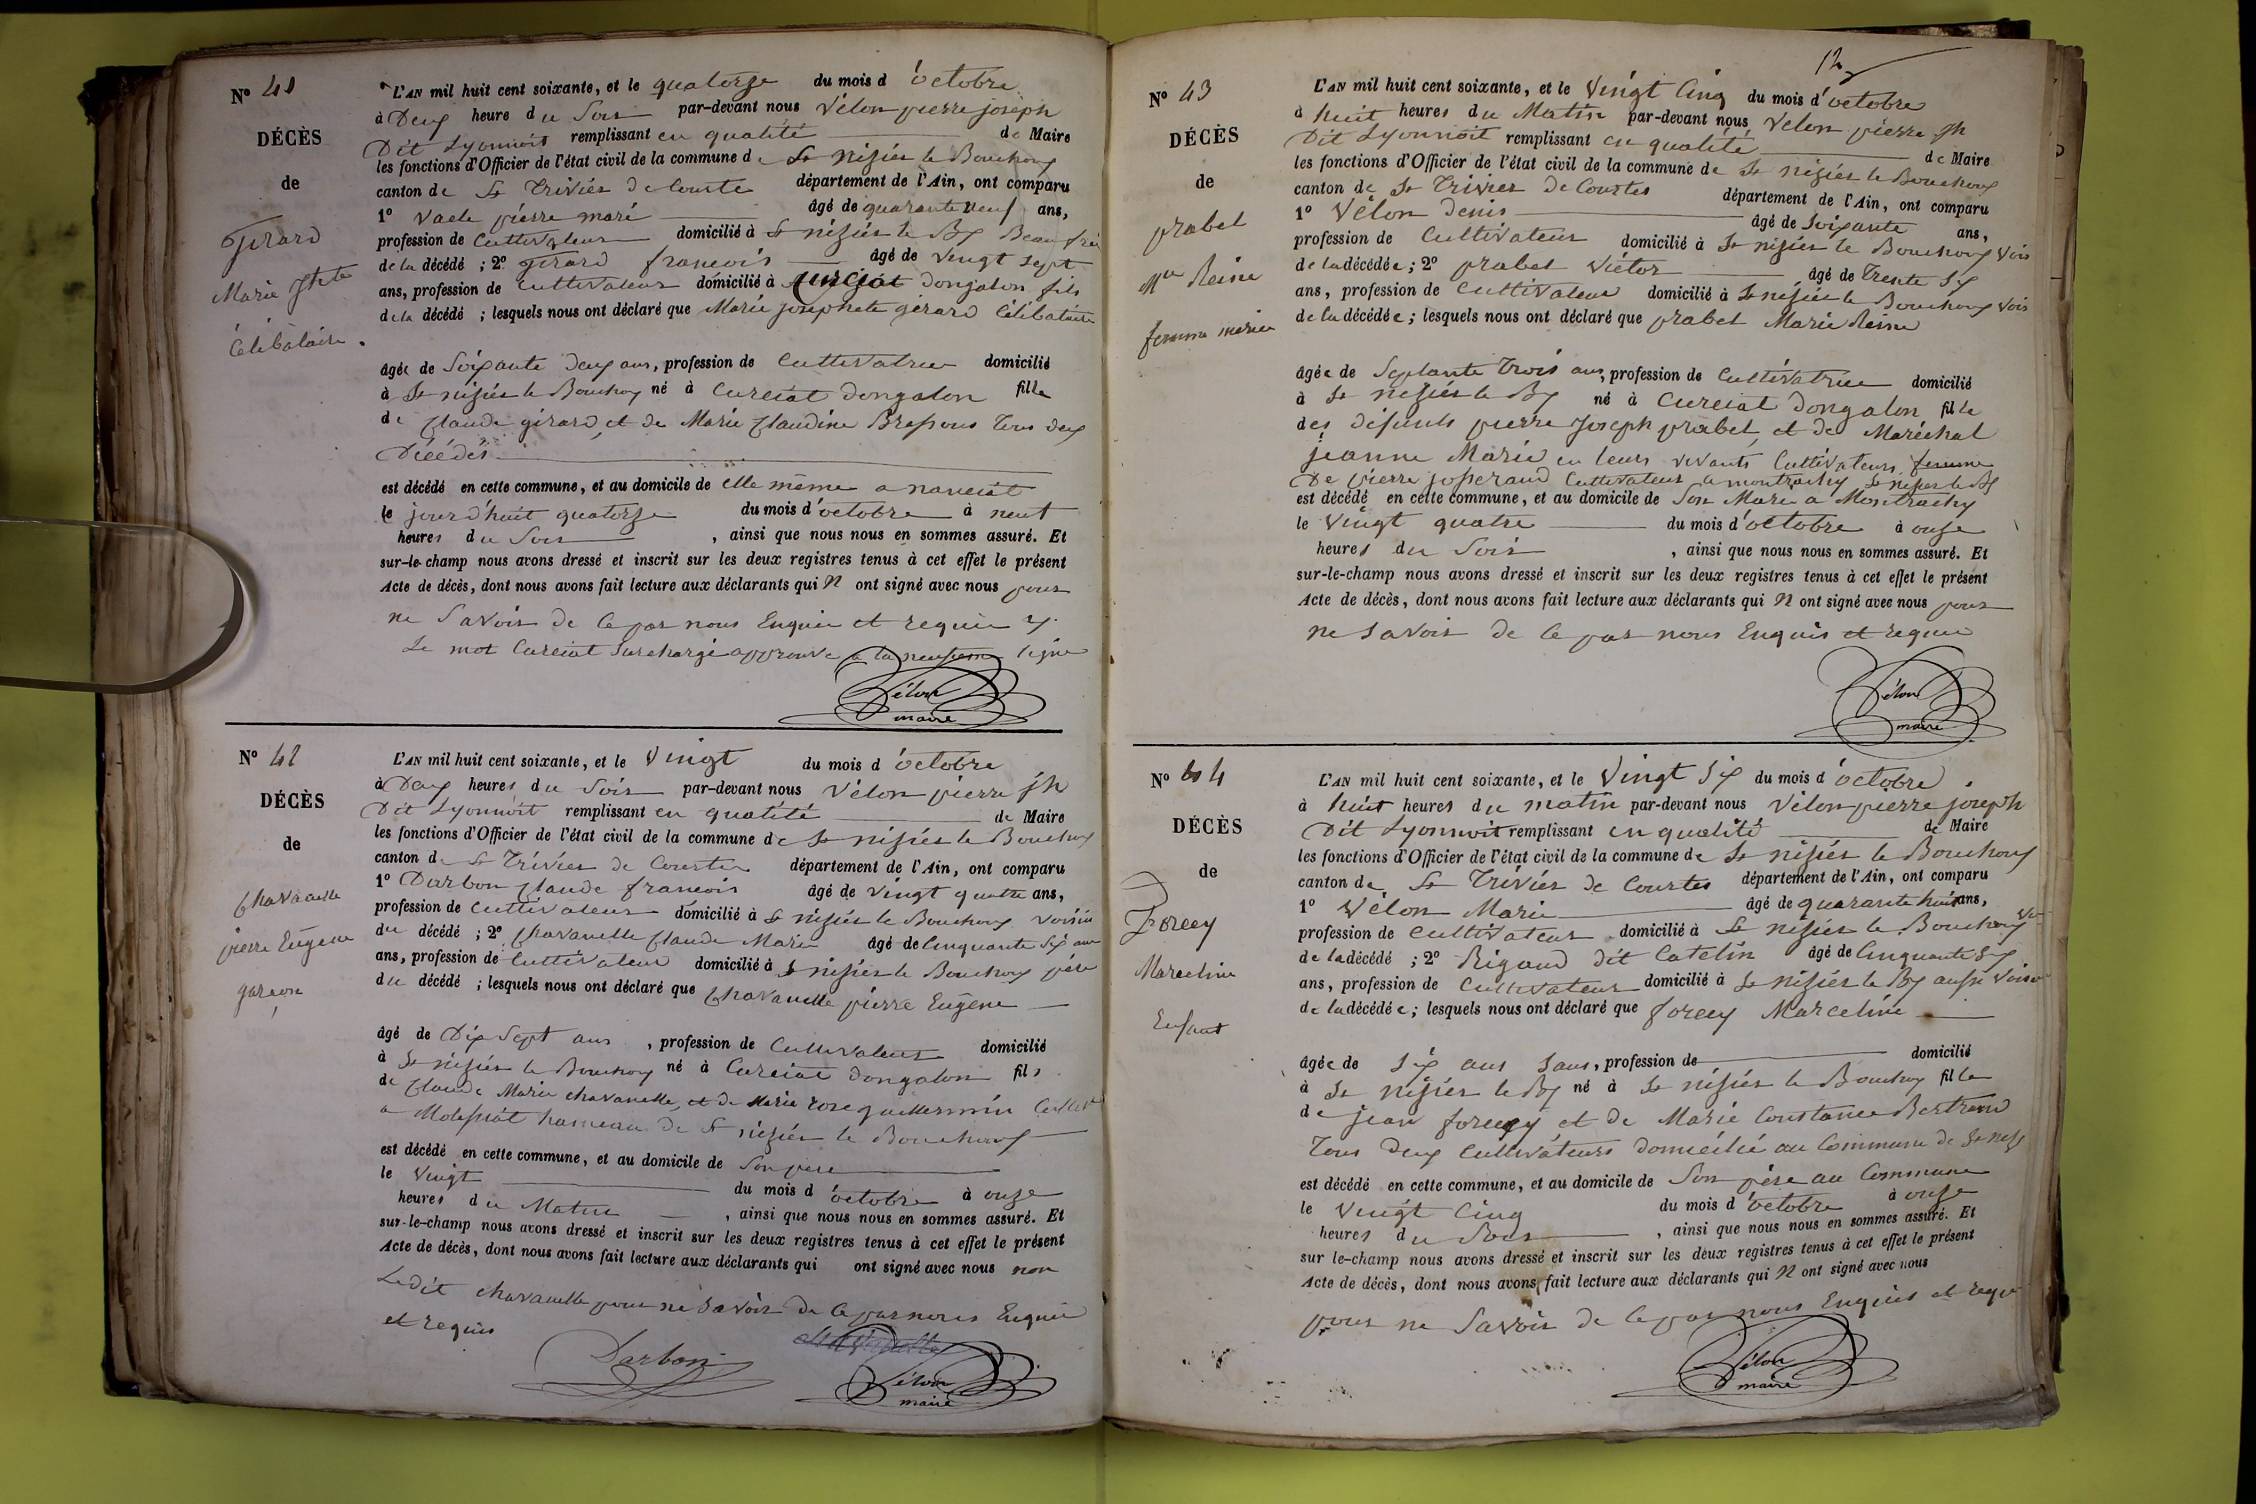 N° 41
DÉCÈS
de
Girard
Marie Jhte
Célibataire.
L'AN mil huit cent soixante, et le quatorze du mois d'octobre
à Deux heure du Soir par-devant nous Vélon pierre joseph
Dit Lyonnoit remplissant en qualité de Maire
les fonctions d'Officier de l'état civil de la commune de St nizier le Bouchoux
canton de St Trivier de Courte département de l'Ain, ont comparu
1° pierre marie âgé de quarante neuf ans,
profession de Cultivateur domicilié à St nizier le Bx Beau frere
de la décédé ; 2° girard francois âgé de vingt sept
ans, profession de Cultivateur domicilié à Curciat dongalon fils
de la décédé ; lesquels nous ont déclaré que Marie josephete girard Célibataire
âgée de Soixante deux ans, profession de Cultivatrice domicilié
à St nizier le Bouchoux né à Curciat dongalon fille
de Claude girard et de Marie Claudine Tous deux
Décédés
est décédé en cette commune, et au domicile de elle même a
le jourd'huit quatorze du mois d'octobre à
heures du Soir , ainsi que nous nous en sommes assuré. Et
sur-le-champ nous avons dressé et inscrit sur les deux registres tenus à cet effet le présent
Acte de décès, dont nous avons fait lecture aux déclarants qui N ont signé avec nous pour
ne Savoir de ce par nous Enquis et requis
Le mot Curciat Surchargé approuvé a la neufieme ligne
Vélon
maire
N° 42
DÉCÈS
de
Chavanelle
pierre Eugene
garçon
L'AN mil huit cent soixante, et le Vingt du mois d'octobre
à Deux heures du Soir par-devant nous Vélon pierre jh
Dit Lyonnoit remplissant en qualité de Maire
les fonctions d'Officier de l'état civil de la commune de St nizier le Bouchoux
canton de St Trivier de Courte département de l'Ain, ont comparu
1° Darbon Claude francois âgé de vingt quatre ans,
profession de Cultivateur domicilié à St nizier le Bouchoux voisin
du décédé ; 2° Chavanelle Claude Marie âgé de Cinquante Six ans
ans, profession de Cultivateur domicilié à St nizier le Bouchoux père
du décédé ; lesquels nous ont déclaré que Chavanelle pierre Eugene
âgé de Dix Sept ans , profession de Cultivateur domicilié
à St nizier le Bouchoux né à Curciat dongalon fils
de Claude Marie chavanelle et de Marie rose guillermin
a hameau de St nizier le Bouchoux
est décédé en cette commune, et au domicile de Son pere
le Vingt du mois d'octobre à onze
heures du Matin , ainsi que nous nous en sommes assuré. Et
sur-le-champ nous avons dressé et inscrit sur les deux registres tenus à cet effet le présent
Acte de décès, dont nous avons fait lecture aux déclarants qui ont signé avec nous non
Ledit chavanelle pour ne Savoir de ce par nous Enquis
et requis
Darbon
Vélon
maire
N° 43
DÉCÈS
de
prabel
Mie Reine
femme mariée
L'AN mil huit cent soixante, et le Vingt Cinq du mois d'octobre
à huit heures du Matin par-devant nous Velon pierre jh
Dit Lyonnoit remplissant en qualité de Maire
les fonctions d'Officier de l'état civil de la commune de St nizier le Bouchoux
canton de St Trivier de Courtes département de l'Ain, ont comparu
1° Vélon denis âgé de Soixante ans,
profession de Cultivateur domicilié à St nizier le Bouchoux Vois
de la décédée ; 2° prabel Victor âgé de Trente Six
ans, profession de Cultivateur domicilié à St nizier le Bouchoux Vois
de la décédée ; lesquels nous ont déclaré que prabel Marie Reine
âgée de Septante Trois ans, profession de Cultivatrice domicilié
à St nizier le Bx né à Curciat Dongalon fille
des défunts pierre Joseph prabel, et de Maréchal
jeanne Marie en leurs vivants Cultivateurs femme
De pierre josserand Cultivateur a montrachy St nizier le Bx
est décédé en cette commune, et au domicile de Son Mari a Montrachy
le Vingt quatre du mois d'octobre à onze
heures du Soir , ainsi que nous nous en sommes assuré. Et
sur-le-champ nous avons dressé et inscrit sur les deux registres tenus à cet effet le présent
Acte de décès, dont nous avons fait lecture aux déclarants qui N ont signé avec nous pour
ne Savoir de ce par nous Enquis et requis
Vélon
maire
N° 44
DÉCÈS
de
Foreey
Marceline
Enfant
L'AN mil huit cent soixante, et le Vingt Six du mois d'octobre
à huit heures du matin par-devant nous Vélon pierre joseph
Dit Lyonnoit remplissant en qualité de Maire
les fonctions d'Officier de l'état civil de la commune de St nizier le Bouchoux
canton de St Trivier de Courtes département de l'Ain, ont comparu
1° Vélon Marie âgé de quarante huit ans,
profession de Cultivateur domicilié à St nizier le Bouchoux
de la décédé ; 2° Rigaud dit Catelin âgé de Cinquante Six
ans, profession de Cultivateur domicilié à St nizier le Bx aussi Voisin
de la décédée ; lesquels nous ont déclaré que foreey Marceline
âgée de Six ans Sans, profession de domicilié
à St nizier le Bx né à St nizier le Bouchoux fille
de jean foreey et de Marie Constance Bertrand
Tous deux Cultivateurs domicilié au Commune de St
est décédé en cette commune, et au domicile de Son père au Commune
le Vingt Cinq du mois d'octobre à onze
heures du Soir , ainsi que nous nous en sommes assuré. Et
sur le-champ nous avons dressé et inscrit sur les deux registres tenus à cet effet le présent
Acte de décès, dont nous avons fait lecture aux déclarants qui N ont signé avec nous
pour ne Savoir de ce par nous Enquis et requ
Vélon
maire